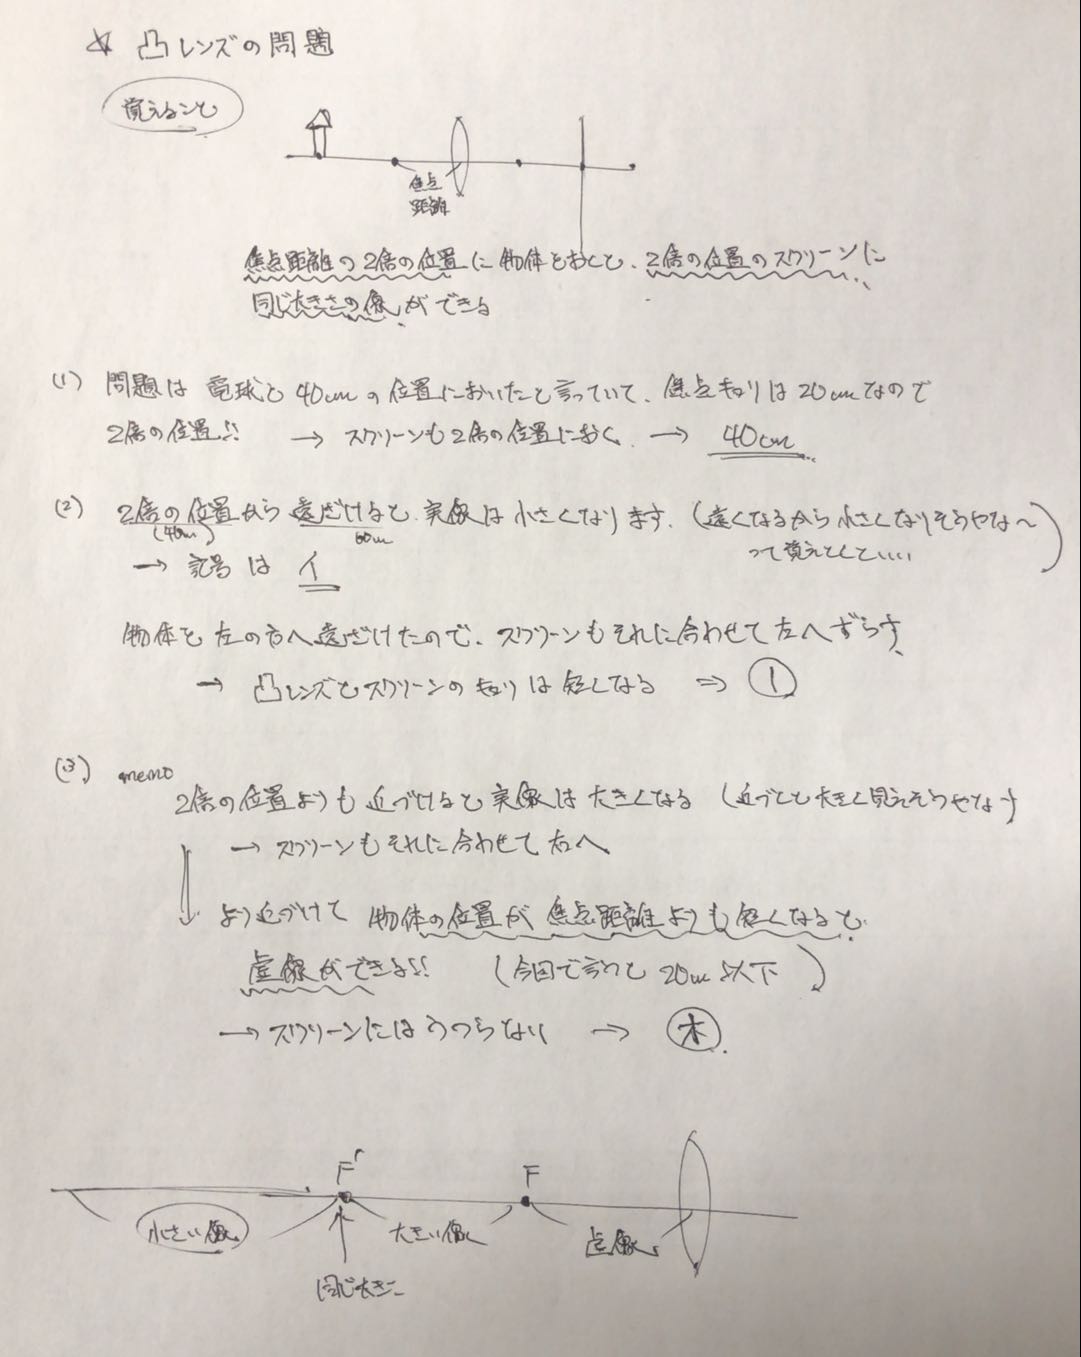 ☆ 凸レンズの問題
覚えること
焦点
距離
焦点距離の2倍の位置に物体をおくと、2倍の位置のスクリーンに
同じ大きさの像ができる
(1) 問題は電球を40cmの位置においたと言っていて、焦点キョリは20cmなので
2倍の位置!! → スクリーンも2倍の位置におく → 40cm
(2) 2倍の位置から遠ざけると、実像は小さくなります。(遠くなるから小さくなりそうやな〜
(40cm) 60cm
って覚えとくといい)
→ 記号は イ
物体を左の方へ遠ざけたので、スクリーンもそれに合わせて左へずらす
→ 凸レンズとスクリーンのキョリは短くなる ⇒ ①
(3) memo
2倍の位置よりも近づけると実像は大きくなる (近づくと大きく見えそうやな)
→ スクリーンもそれに合わせて右へ
より近づけて 物体の位置が焦点距離よりも短くなると
虚像ができる!! (今回で言うと20cm以下)
→ スクリーンにはうつらない → オ
F' F
小さい像 大きい像 虚像
同じ大きさ